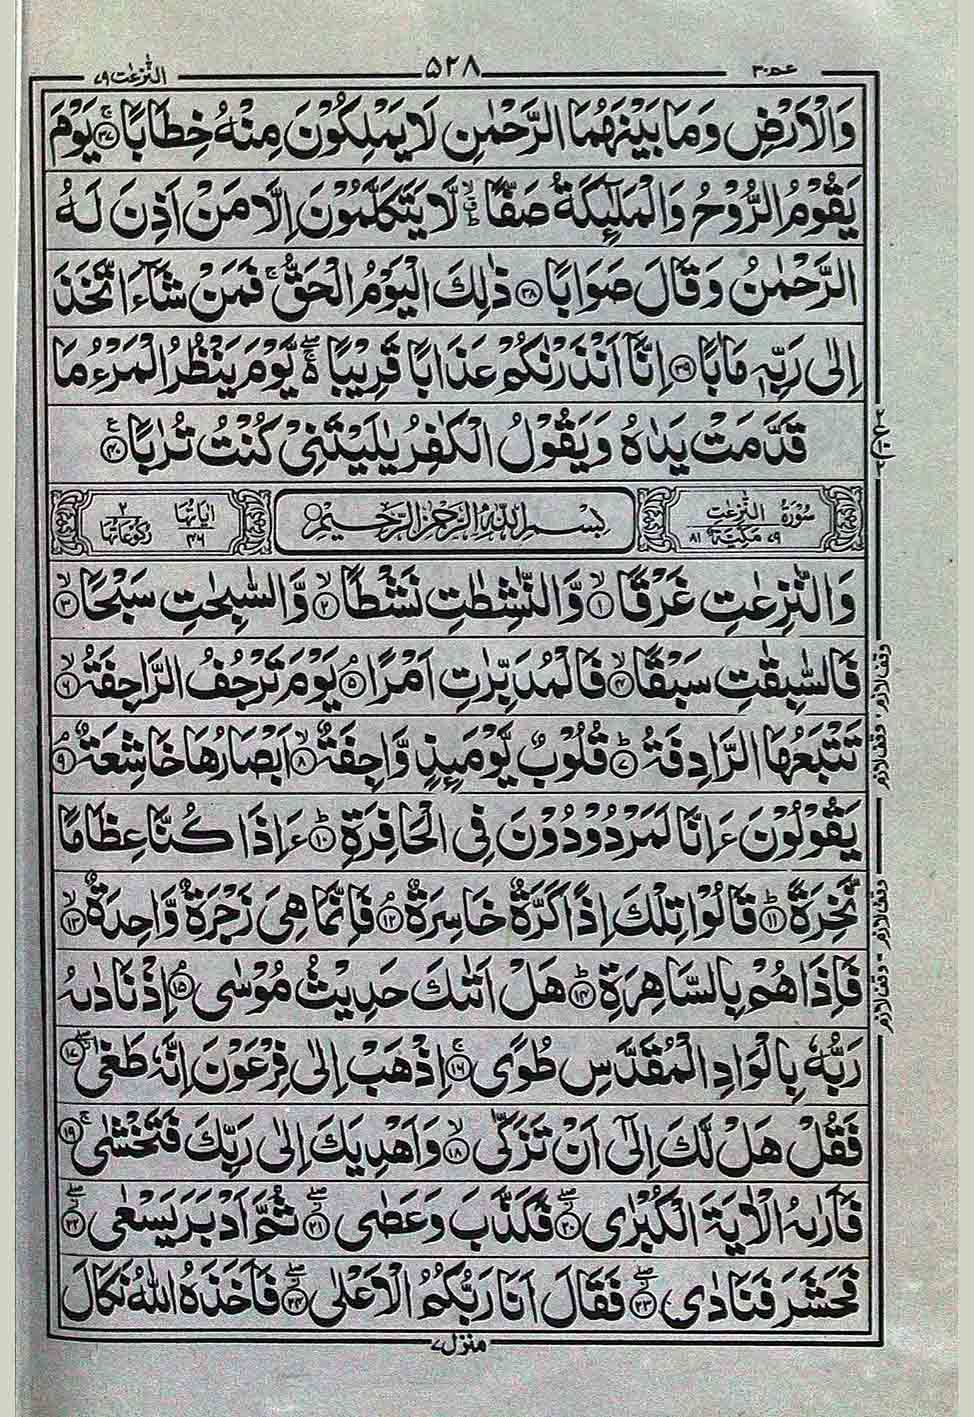 عم ٣٠
٥٢٨
النّٰزعٰت ٧٩
وَالْاَرْضِ وَمَا بَيْنَهُمَا الرَّحْمٰنِ لَا يَمْلِكُوْنَ مِنْهُ خِطَابًا ۚ﴿٣٧﴾ يَوْمَ
يَقُوْمُ الرُّوْحُ وَالْمَلٰٓئِكَةُ صَفًّا ۙؕ لَّا يَتَكَلَّمُوْنَ اِلَّا مَنْ اَذِنَ لَهُ
الرَّحْمٰنُ وَقَالَ صَوَابًا ﴿٣٨﴾ ذٰلِكَ الْيَوْمُ الْحَقُّ ۚ فَمَنْ شَآءَ اتَّخَذَ
اِلٰى رَبِّهٖ مَاٰبًا ﴿٣٩﴾ اِنَّاۤ اَنْذَرْنٰكُمْ عَذَابًا قَرِيْبًا ۖۚ۬ يَّوْمَ يَنْظُرُ الْمَرْءُ مَا
قَدَّمَتْ يَدٰهُ وَيَقُوْلُ الْكٰفِرُ يٰلَيْتَنِىْ كُنْتُ تُرٰبًا ﴿٤٠﴾ ع
سُوْرَةُ النّٰزِعٰتِ ٧٩ مَكِّيَّةٌ ٨١
بِسْمِ اللهِ الرَّحْمٰنِ الرَّحِيْمِ
اٰيَاتُهَا ٤٦ رُكُوْعَاتُهَا ٢
وَالنّٰزِعٰتِ غَرْقًا ۙ﴿١﴾ وَّالنّٰشِطٰتِ نَشْطًا ۙ﴿٢﴾ وَّالسّٰبِحٰتِ سَبْحًا ۙ﴿٣﴾
فَالسّٰبِقٰتِ سَبْقًا ۙ﴿٤﴾ فَالْمُدَبِّرٰتِ اَمْرًا ۘ﴿٥﴾ يَوْمَ تَرْجُفُ الرَّاجِفَةُ ۙ﴿٦﴾
تَتْبَعُهَا الرَّادِفَةُ ؕ﴿٧﴾ قُلُوْبٌ يَّوْمَئِذٍ وَّاجِفَةٌ ۙ﴿٨﴾ اَبْصَارُهَا خَاشِعَةٌ ۘ﴿٩﴾
يَقُوْلُوْنَ ءَاِنَّا لَمَرْدُوْدُوْنَ فِى الْحَافِرَةِ ؕ﴿١٠﴾ ءَاِذَا كُنَّا عِظَامًا
نَّخِرَةً ؕ﴿١١﴾ قَالُوْا تِلْكَ اِذًا كَرَّةٌ خَاسِرَةٌ ۘ﴿١٢﴾ فَاِنَّمَا هِىَ زَجْرَةٌ وَّاحِدَةٌ ۙ﴿١٣﴾
فَاِذَا هُمْ بِالسَّاهِرَةِ ؕ﴿١٤﴾ هَلْ اَتٰىكَ حَدِيْثُ مُوْسٰى ۘ﴿١٥﴾ اِذْ نَادٰىهُ
رَبُّهٗ بِالْوَادِ الْمُقَدَّسِ طُوًى ۚ﴿١٦﴾ اِذْهَبْ اِلٰى فِرْعَوْنَ اِنَّهٗ طَغٰى ۖ﴿١٧﴾
فَقُلْ هَلْ لَّكَ اِلٰٓى اَنْ تَزَكّٰى ۙ﴿١٨﴾ وَاَهْدِيَكَ اِلٰى رَبِّكَ فَتَخْشٰى ۚ﴿١٩﴾
فَاَرٰىهُ الْاٰيَةَ الْكُبْرٰى ۖ﴿٢٠﴾ فَكَذَّبَ وَعَصٰى ۖ﴿٢١﴾ ثُمَّ اَدْبَرَ يَسْعٰى ۖ﴿٢٢﴾
فَحَشَرَ فَنَادٰى ۖ﴿٢٣﴾ فَقَالَ اَنَا رَبُّكُمُ الْاَعْلٰى ۖ﴿٢٤﴾ فَاَخَذَهُ اللهُ نَكَالَ
وقف لازم
وقف لازم
وقف لازم
وقف لازم
منزل ٧